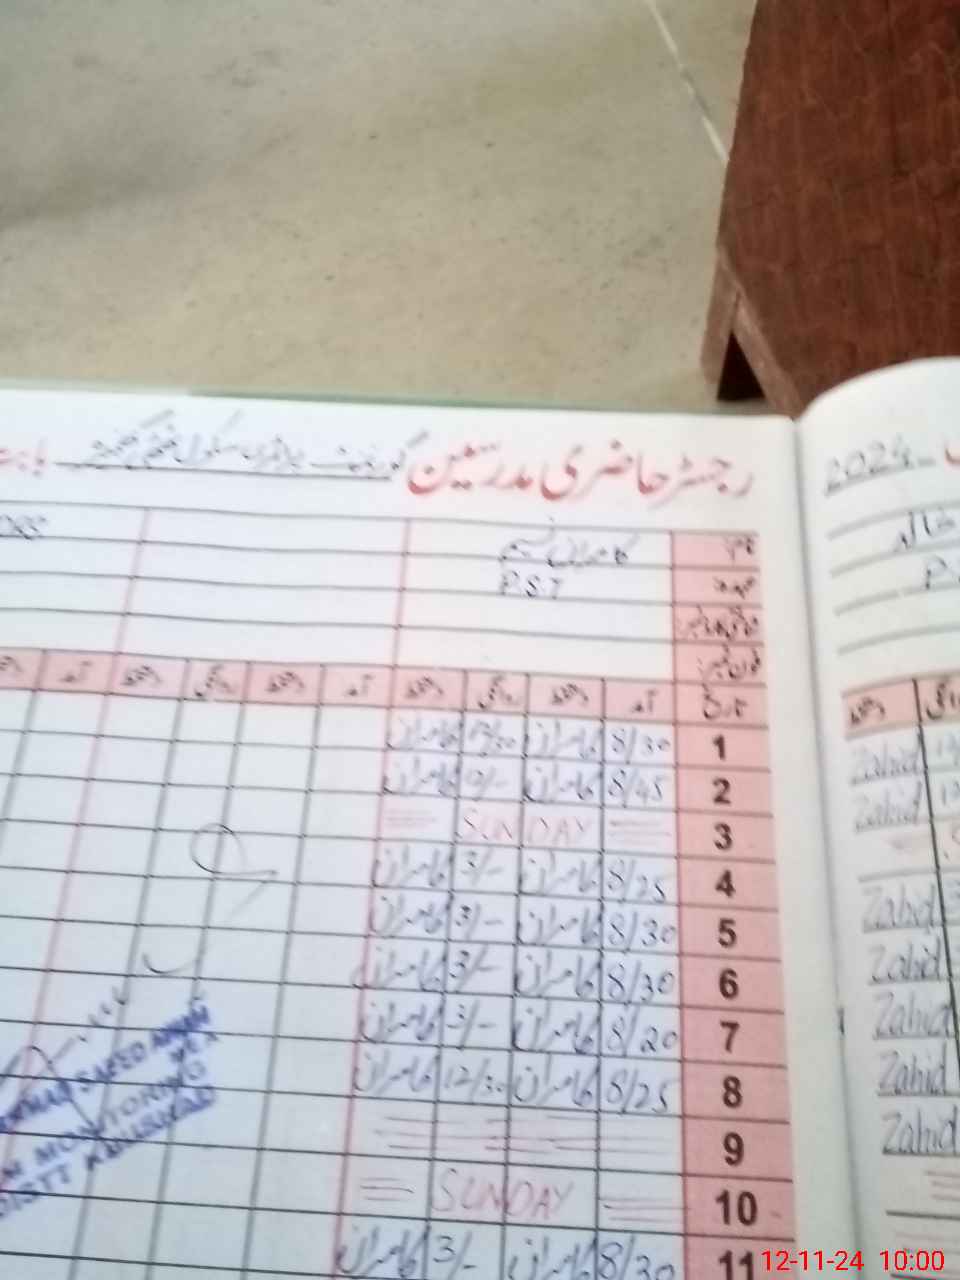 2024
رجسٹر حاضری مدرسین گورنمنٹ پرائمری سکول
نام کامران نسیم
عہدہ P.S.T
شناختی کارڈ نمبر:
فون نمبر:
تاریخ آمد دستخط روانگی دستخط آمد دستخط روانگی دستخط آمد
1 8/30 کامران 12/30 کامران
2 8/45 کامران کامران
3 SUNDAY
4 8/25 کامران 3/- کامران
5 8/30 کامران 3/- کامران
6 8/30 کامران 3/- کامران
7 8/20 کامران 3/- کامران
8 8/25 کامران 12/30 کامران
9
10 SUNDAY
11 8/30 کامران 3/- کامران
دستخط روانگی
Zahid
Zahid
Zahid
Zahid
Zahid
Zahid
Zahid
SAEED
MONITORING
DISTT
12-11-24 10:00